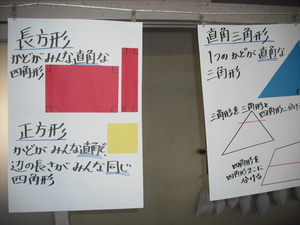 長方形
かどがみんな直角な
四角形
正方形
かどがみんな直角で、
辺の長さがみんな同じ
四角形
直角三角形
1つのかどが直角な
三角形
三角形を三角形と
四角形に分け
四角形を
四角形2こに
分ける